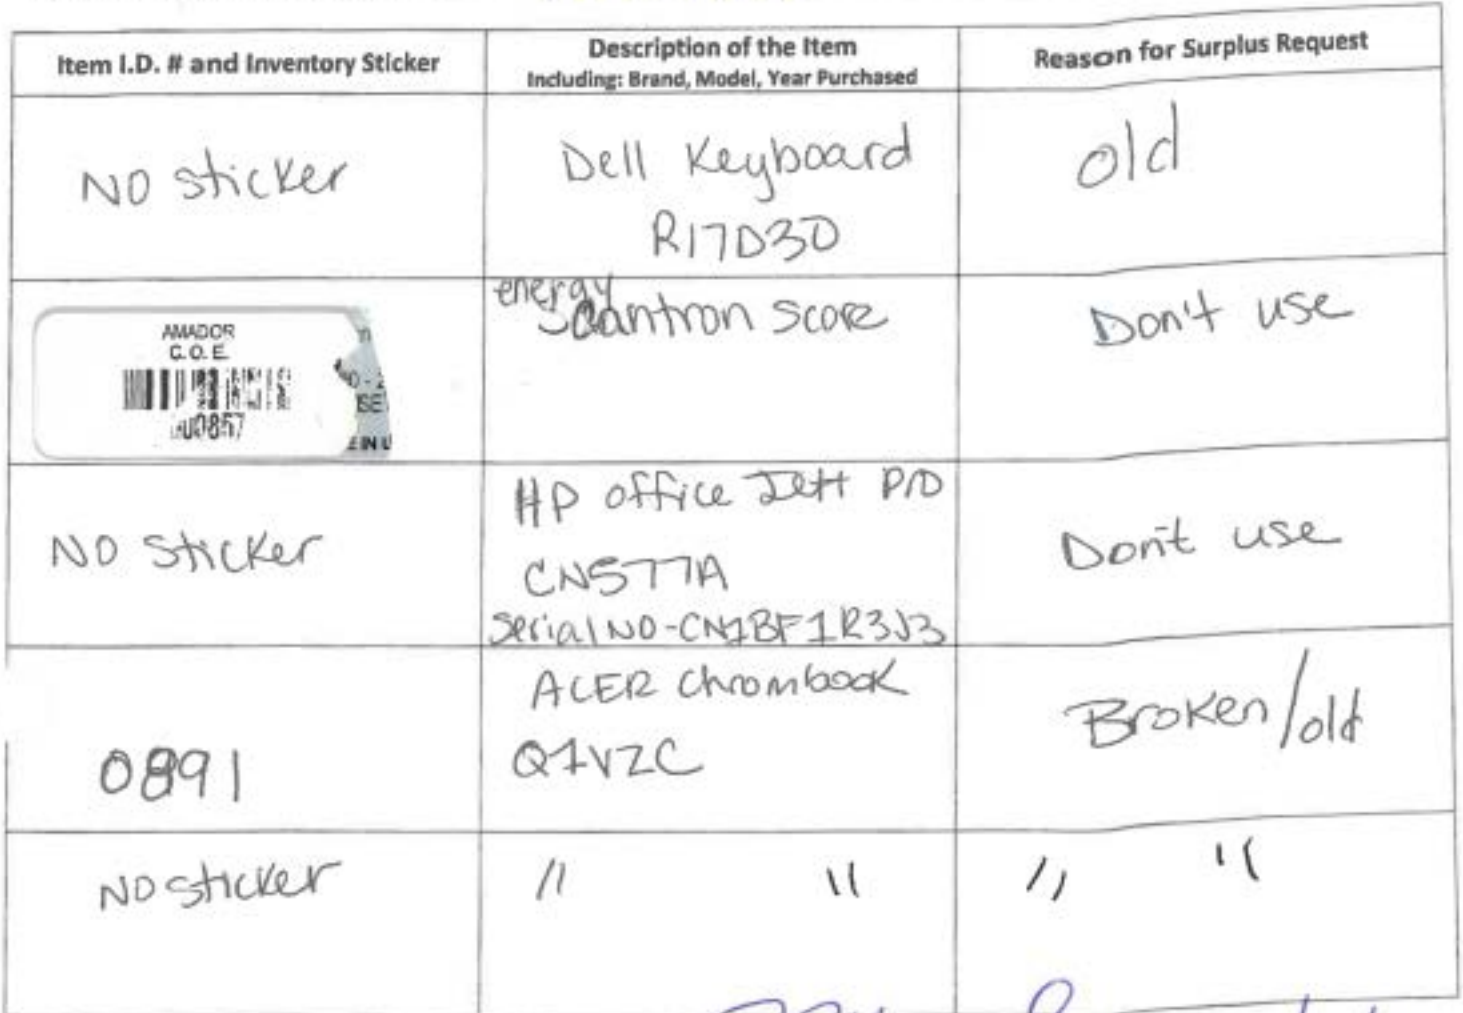 Item I.D. # and Inventory Sticker
Description of the Item
Including: Brand, Model, Year Purchased
Reason for Surplus Request
NO sticker
Dell Keyboard
R17D3D
old
AMADOR
C. O. E.
00857
energy
Scantron Score
Don't use
NO sticker
HP office Jett Pro
CN577A
Serial NO-CN1BF1R3J3
Don't use
0891
ACER Chrombook
Q1VZC
Broken/old
NO sticker
" "
" "